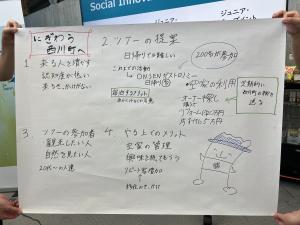 Social Innov
ジュニア・
ジュニア・
にぎわう
西川町へ
1
来る人を増やす
認知度が低い
来るきっかけがない
2. ツアーの提案
日帰りでは難しい
これまでの活動
ONSENガストロノミー
日帰り
200名が参加
空家の利用
オーナー探し
リフォーム
片すけに5万円
定期的に
西川町の
送る
3.
ツアーの参加者
観光したい人
自然を見たい人
20代〜の人達
4
やる上でのメリット
空家の管理
興味を持ってもらう
リピート客増加
移住のきっかけ